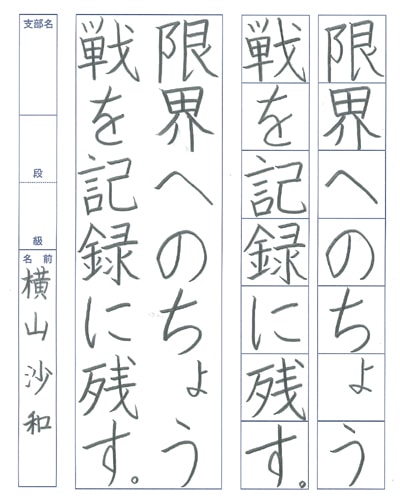 限界へのちょう
戦を記録に残す。
限界へのちょう
戦を記録に残す。
支部名
段
級
名前
横山沙和